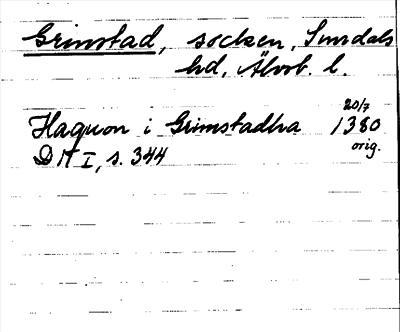 Grimstad, socken, Sundals
hd, Älvsb. l.
20/7
Haquon i Grimstadha 1380
D N I, s. 344 orig.